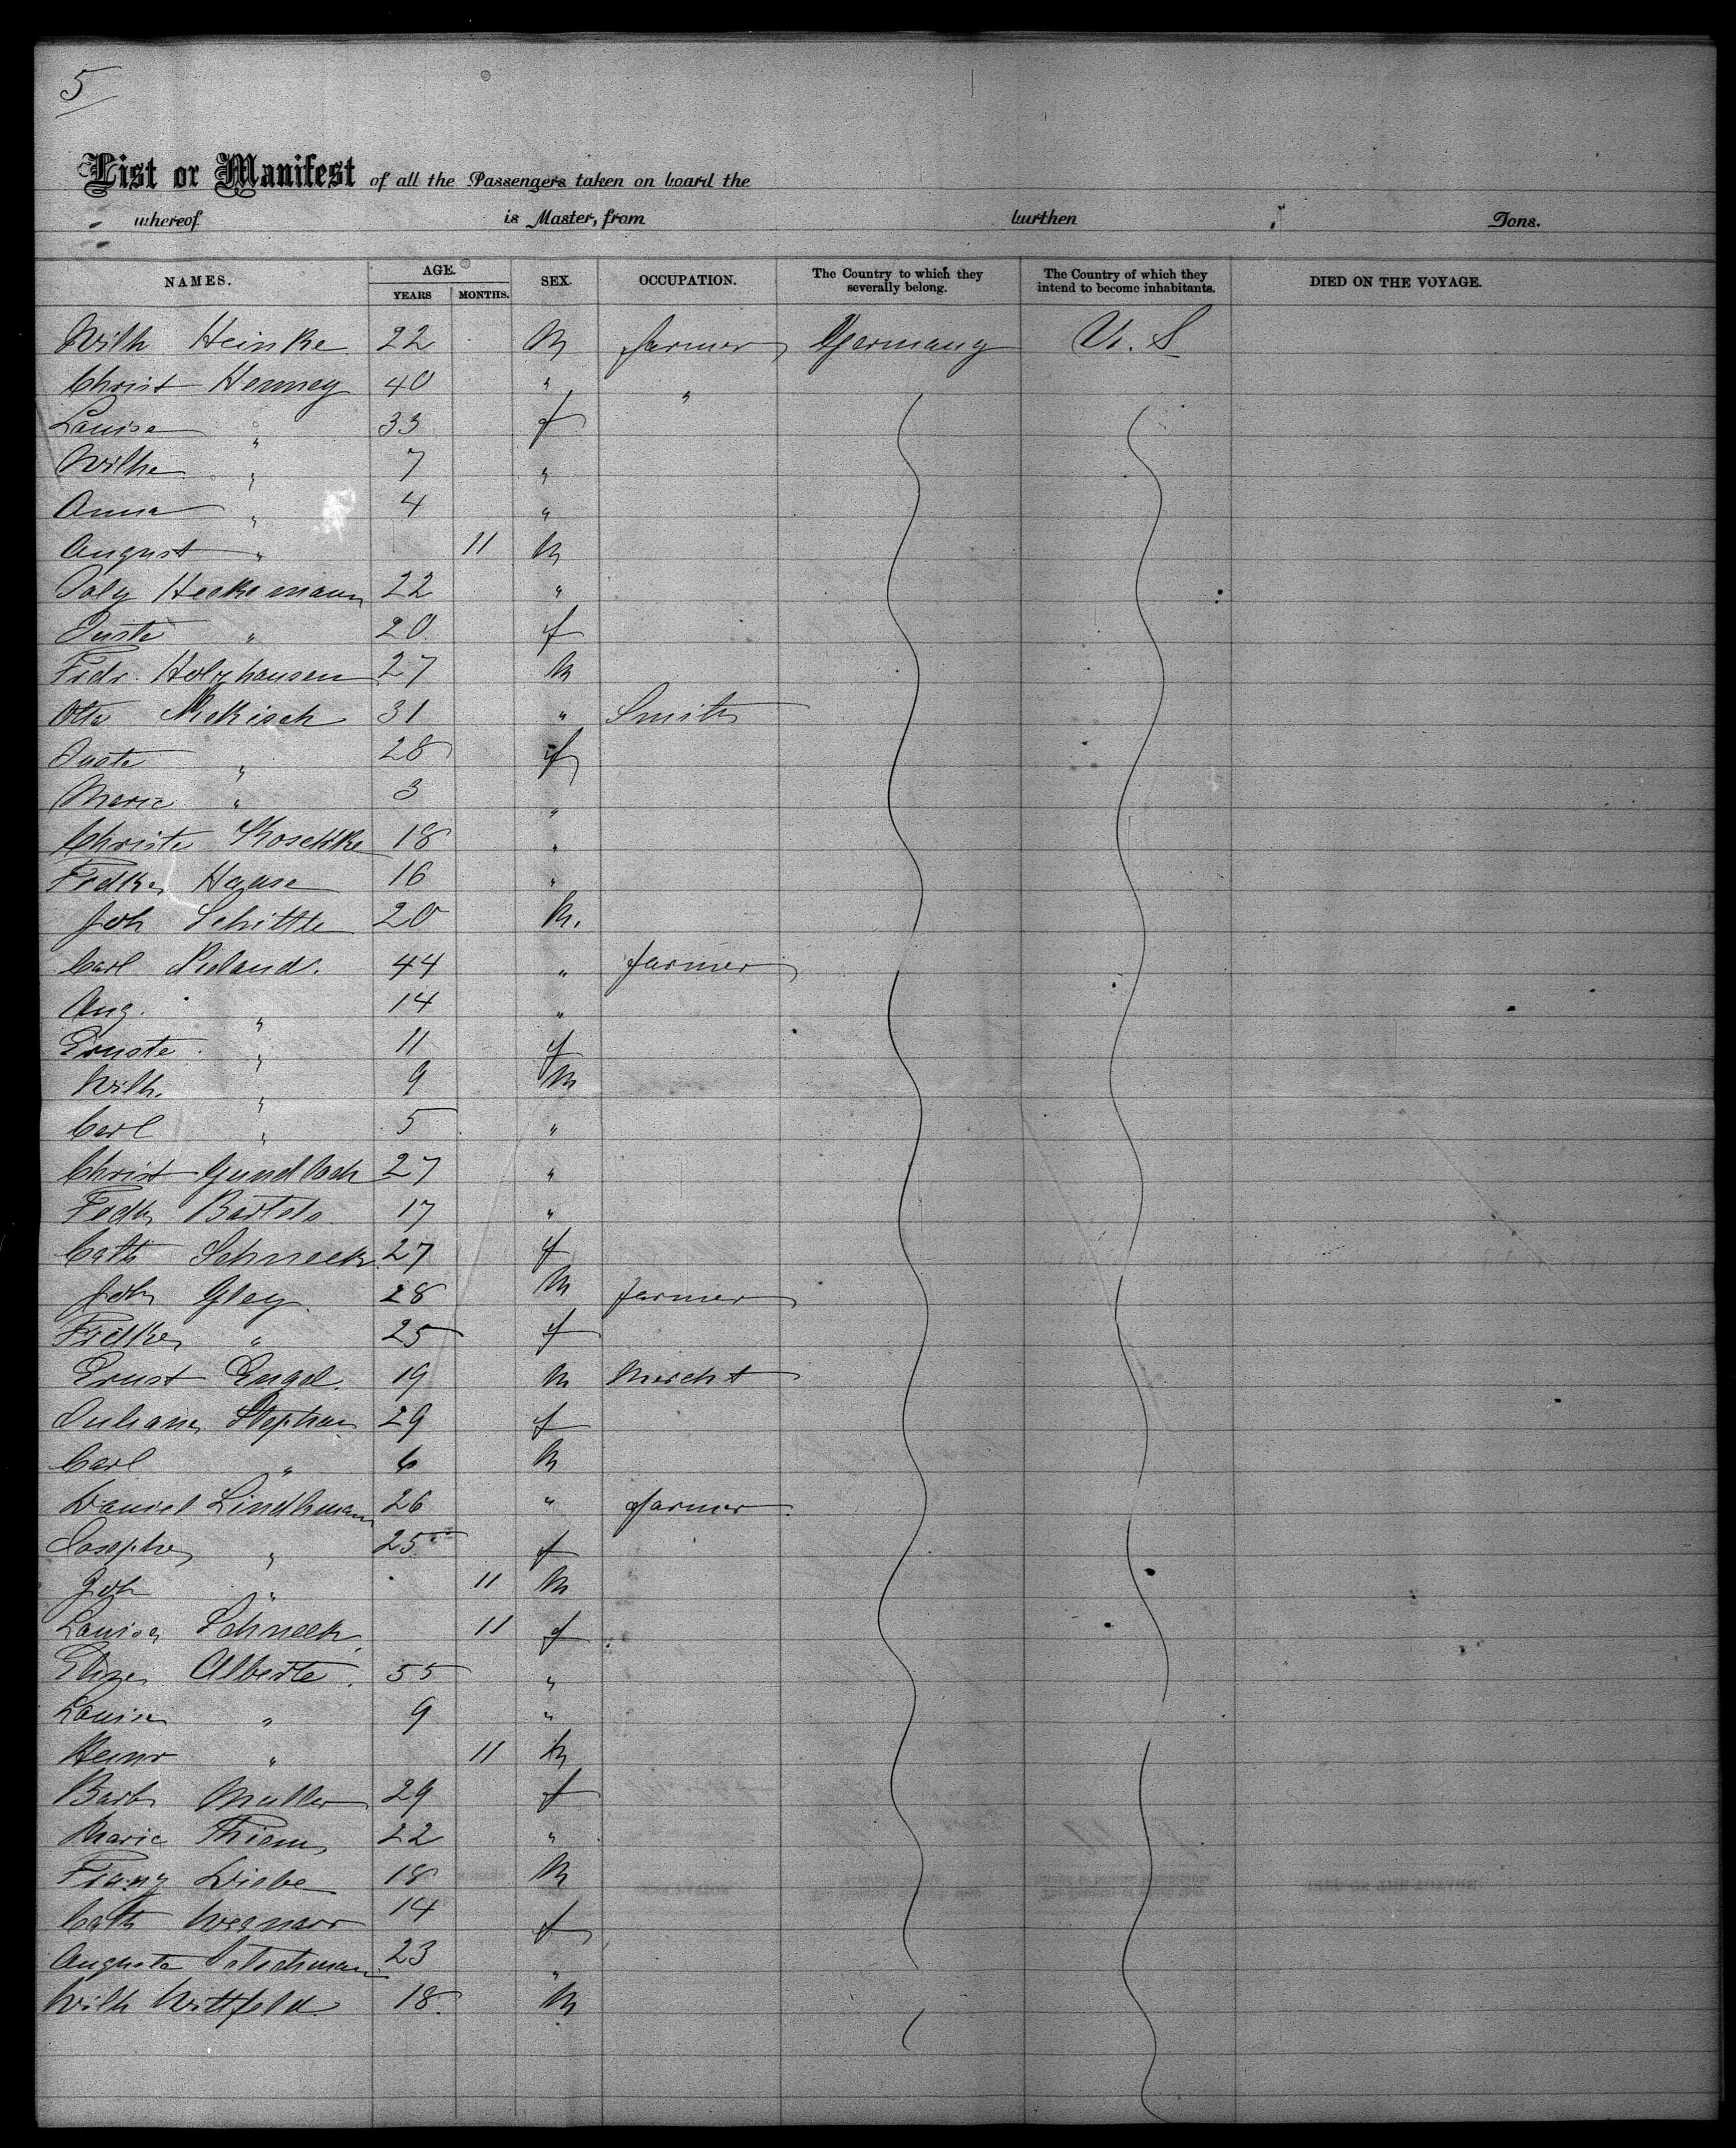 5
List or Manifest of all the Passengers taken on board the
whereof is Master, from burthen Tons.
NAMES. AGE. YEARS MONTHS. SEX. OCCUPATION. The Country to which they severally belong. The Country of which they intend to become inhabitants. DIED ON THE VOYAGE.
Wilh Heinke 22 M farmer Germany U. S
Christ Henney 40 " "
Louise " 33 f
Wilhe " 7 "
Anna " 4 "
August " 11 M
Heckemann 22 "
" 20 f
Fidr. Holzhausen 27 M
Otto Nickisch 31 " Smith
" 28 f
Marie " 3 "
Christe 18 "
Fredke Haase 16 "
Joh Schittle 20 M.
Carl Ruland. 44 " farmer
Aug. " 14 "
Ernste " 11 f
Wilh. " 9 M
Carl " 5 "
Christ Gundlach 27 "
Fredk Bartels 17 "
Cath Schneck 27 f
Joh Gley 28 M farmer
Fridke " 25 f
Ernst Engel. 19 M Mercht
Juliane Stephan 29 f
Carl " 6 M
Daniel Lindhman 26 " farmer
Josephe " 25 f
Joh " 11 M
Louise Schneck 11 f
Elize Alberte. 55 "
Louise " 9 "
Heinr " 11 M
Barb Muller 29 f
Marie Thiem 22 "
Franz Diebe 18 M
Cath Wegnarr 14 f
Auguste 23 "
Wilh Wittfeld 18. M